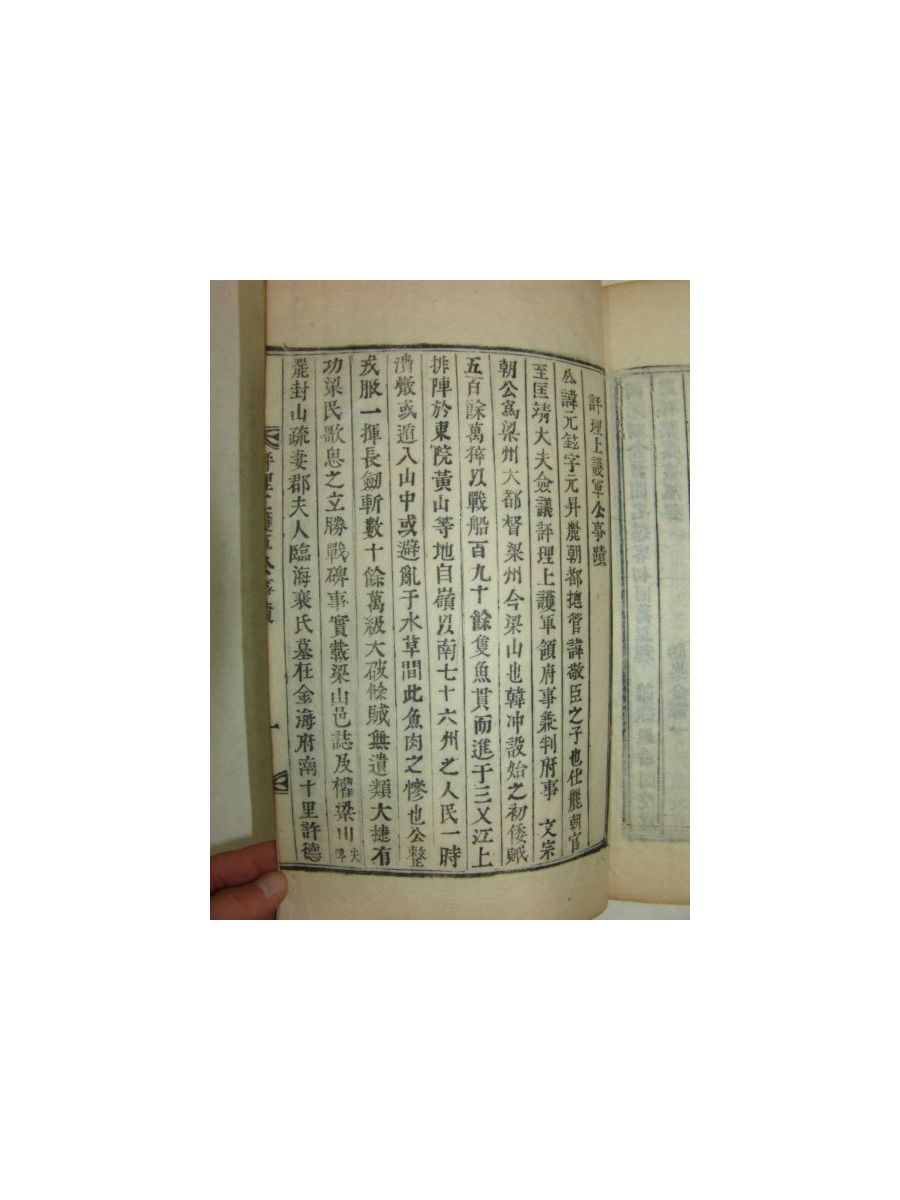 評理上護軍公事蹟
公諱元鉉字元昇麗朝都摠管諱敬臣之子也仕麗朝官
至匡靖大夫僉議評理上護軍領府事兼判府事 文宗
朝公爲梁州大都督梁州今梁山也韓冲設始之初倭賊
五百餘萬猝以戰船百九十餘隻魚貫而進于三叉江上
排陣於東院黃山等地自嶺以南七十六州之人民一時
潰散或遁入山中或避亂于水草間此魚肉之慘也公整
戎服一揮長劒斬數十餘萬級大破餘賊無遺類大捷有
功梁民歌思之立勝戰碑事實載梁山邑誌及權梁山
罷封山疏妻郡夫人臨海裵氏墓在金海府南十里許德
評理上護軍公事蹟 一